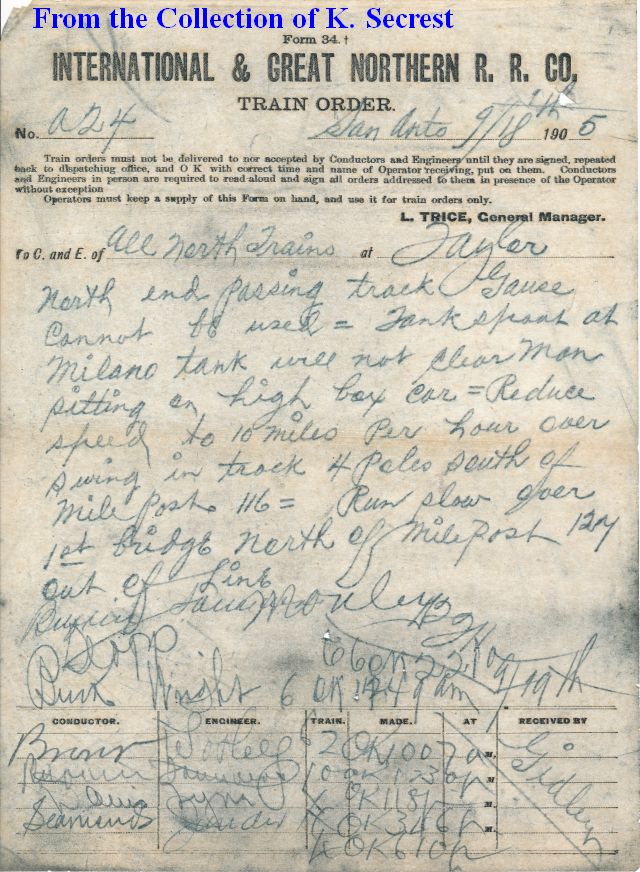 From the Collection of K. Secrest
Form 34.†
INTERNATIONAL & GREAT NORTHERN R. R. CO,
TRAIN ORDER.
No. A24 San Anto 9/18th 1905
Train orders must not be delivered to nor accepted by Conductors and Engineers until they are signed, repeated
back to dispatching office, and O K with correct time and name of Operator receiving, put on them. Conductors
and Engineers in person are required to read aloud and sign all orders addressed to them in presence of the Operator
without exception
Operators must keep a supply of this Form on hand, and use it for train orders only.
L. TRICE, General Manager.
To C. and E. of All North Trains at Taylor
North end passing track Gause
Cannot be used = Tank spout at
Milano tank will not clear man
sitting on high box car = Reduce
speed to 10 miles Per hour over
swing in track 4 Poles south of
Mile Post 116 = Run slow over
1st bridge North of MilePost 127
out of Line
Burk Wright 6 OK 1249 am 9/19th
CONDUCTOR. ENGINEER. TRAIN. MADE. AT RECEIVED BY
Brown 2 OK 1007 a M.
M.
M.
Seamans M.
4 OK 610 p